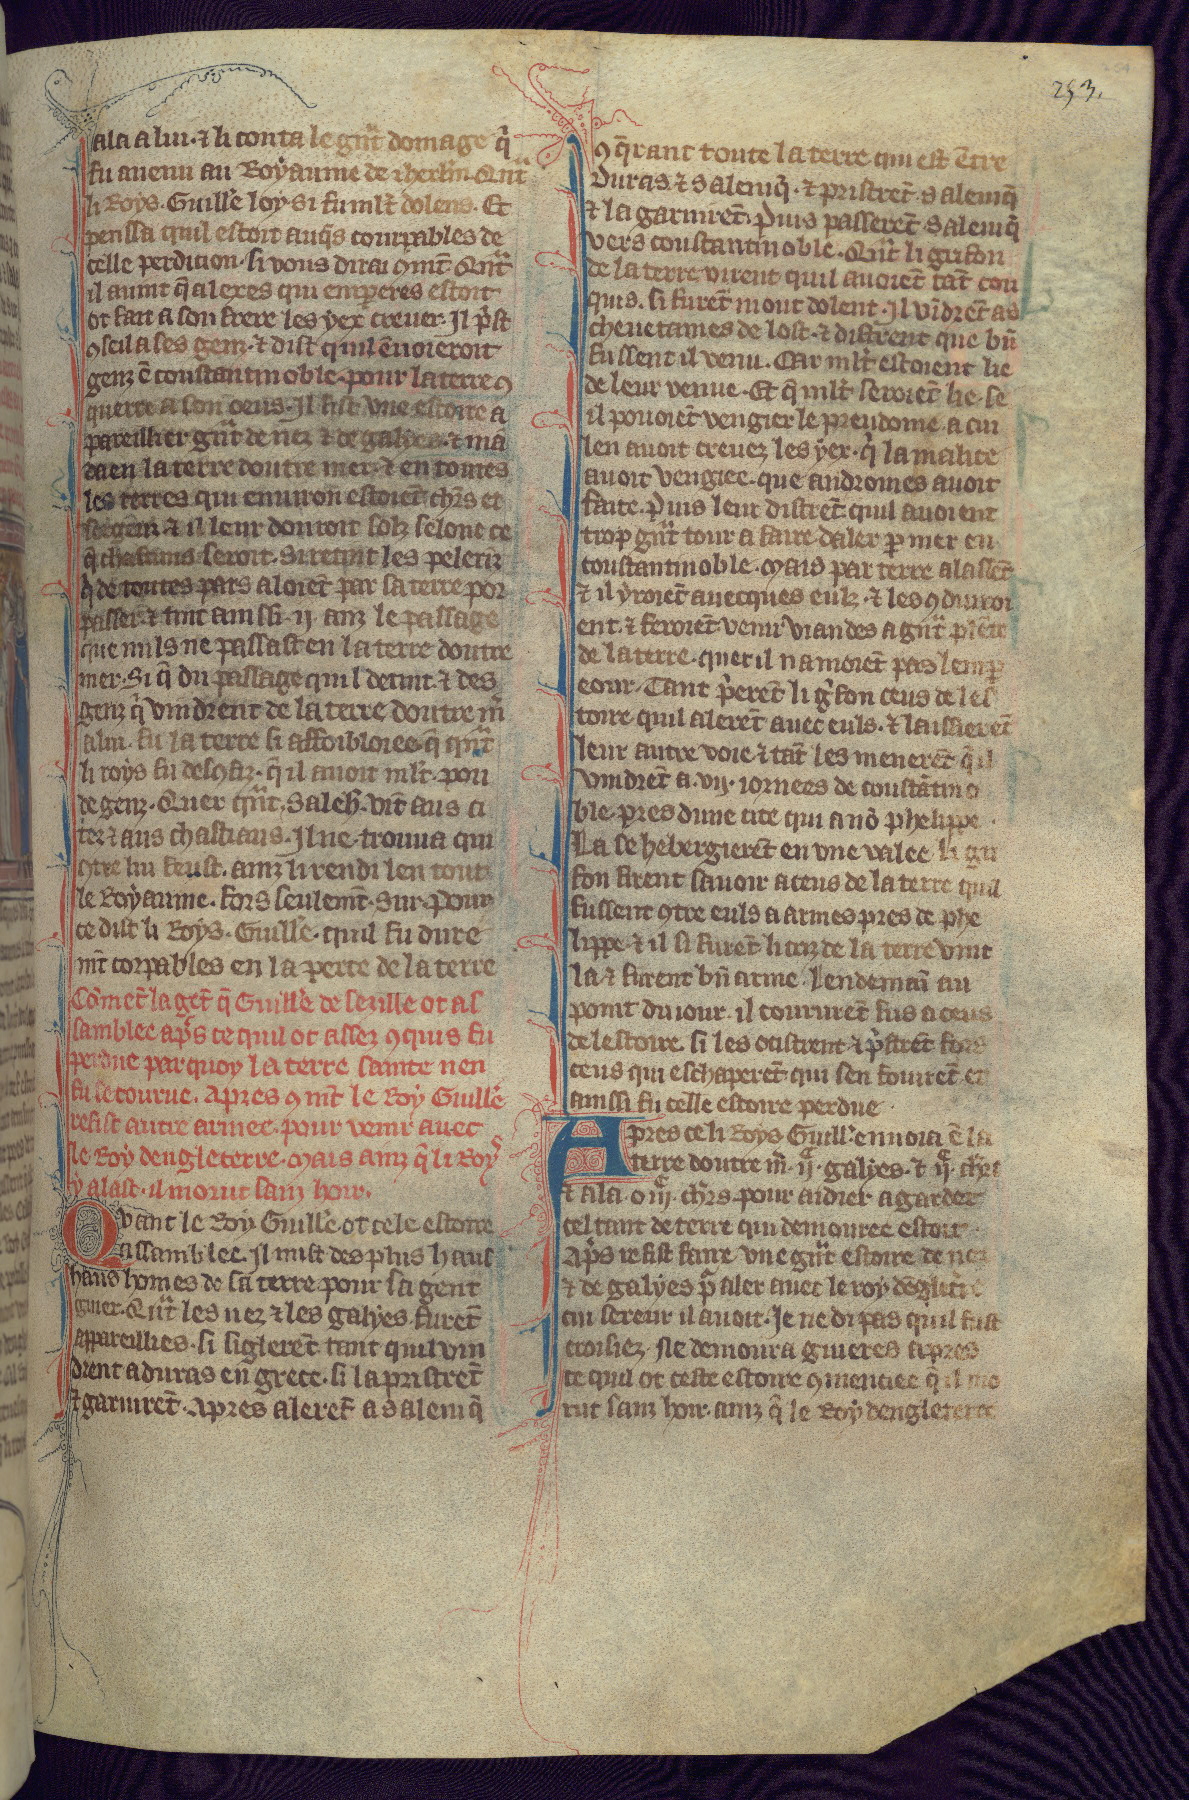 253.
ala a lui · ⁊ li conta le gᷓnt domage q̄
fu auenu au Royaume de iherlm̄. Qᷓnt
li Roys. Guille loy · si fu ml̄t dolens. Et
penssa quil estoit auq̄s courpables de
celle perdicion · si vous dirai 9mt̄ Qᷓnt
il auint q̄ alexes qui emperes estoit
ot fait a son frere les yex creuer · Il p̄st
9seil a ses genz · ⁊ dist quil ēuoieroit
genz ē coustantinoble · pour la terre 9
querre a son oeus · Il fist vne estoire a
pareillier gᷓnt de nez ⁊ de galyes · ⁊ mā
da en la terre doutre mer · ⁊ en toutes
les terres qui enuiron estoiēt chr̄s et
sergenz ⁊ il leur donroit solz selonc ce
q̄ chascuns seroit · Si retint les pelerīz
q̄ de toutes pars aloiēt par sa terre por
passer · ⁊ tint ainssi · ij · anz le passage
que nuls ne passast en la terre doutre
mer · Si q̄ du passage quil detint · ⁊ des
genz q̄ vindrent de la terre doutre m̄
a lui · fu la terre si affoibloiee q̄ qᷓnt
li roys fu desc9fiz · q̄ il auoit ml̄t · pou
de genz · Quer qᷓnt · Saleh̄ · vīt aus ci
tez ⁊ aus chastiaus · Il ne trouua qui
9tre lui feust · ainz li rendi len tout
le Royaume · fors seulemt̄ · Sur · Pour
ce dist li Roys · Guille · quil fu dure
mt̄ corpables en la perte de la terre
Cōmēt la gēt q̄ Guille de sezille ot as
samblee ap̄s ce quil ot assez 9quis fu
perdue par quoy la terre sainte nen
fu secourue. Apres 9mt̄ le Roy Guille
refist autre armee · pour venir auec
le Roy dengleterre · Mais ainz q̄ li Roys
y alast · il morut sanz hoir.
Qvant le Roy Guille · ot cele estoire
assamblee · Il mist des plus haus
haus homes de sa terre pour sa gent
guier · Qᷓnt les nez ⁊ les galyes furēt
appareillies · si siglerēt tant quil vin
drent a duras en grece · si la pristrēt
⁊ garnirēt · Apres alerēt a salenīq̄
9q̄rant toute la terre qui est ētre
Duras ⁊ salenīq̄ · ⁊ pristrēt salenīq̄
⁊ la garnirēt · Puis passerēt salenīq̄
vers coustantinoble · Qᷓnt li grifon
de la terre virent quil auoiēt tāt con
quis · si furēt mout dolent · Il vīdrēt as
cheuetaines de lost · ⁊ distrent que bn̄
fussent il venu · Car ml̄t estoient lie
de leur venue · Et q̄ ml̄t seroiēt lie · se
il pouoiēt vengier le preudome a cui
len auoit creuez les yex · q̄ la malice
auoit vengiee · que andromes auoit
faite · Puis leur distrēt quil auoient
trop gᷓnt tour a faire daler p̄ mer en
coustantinoble · Mais par terre alassēt
⁊ il yroiēt auecques eulz · ⁊ les 9duiroi
ent · ⁊ feroiēt venir viandes a gᷓnt plēte
de la terre · quer il namoiēt pas lemp̄
eour · Tant p̄erēt li g̊fon ceus de les
toire quil alerēt auec euls · ⁊ laissierēt
leur autre voie ⁊ tāt les menerēt q̄ il
vindrēt a · vij · iornees de coustātino
ble pres dune cite qui a nō phelippe ·
La se hebergierēt en vne valee li gri
fon firent sauoir a ceus de la terre quil
fussent 9tre euls a armes pres de phe
lippe · ⁊ il si furēt · li cez de la terre vint
la ⁊ furent bn̄ arme · Lendemaī au
point du iour · il coururēt sus a ceus
de lestoire · si les ocistrent ⁊ p̄strēt fors
ceus qui eschaperēt · qui sen fouirēt et
ainssi fu celle estoire perdue ·
Apres ce li Roys Guill · enuoia ē la
terre doutre m̄ · ij · galyes · ⁊ ij · chr̄s
⁊ ala · o iiij · chr̄s pour aidier a garder
cel tant de terre qui demouree estoit ·
Ap̄s refist faire vne gᷓnt estoire de nez
⁊ de galyes p̄ aler auec le roy dēgletr̄e
cui sereur il auoit · Je ne di pas quil fust
croisiez · Ne demoura guieres apres
ce quil ot ceste estoire 9mentiee q̄ il mo
rut sanz hoir · ainz q̄ le Roy dengleterre